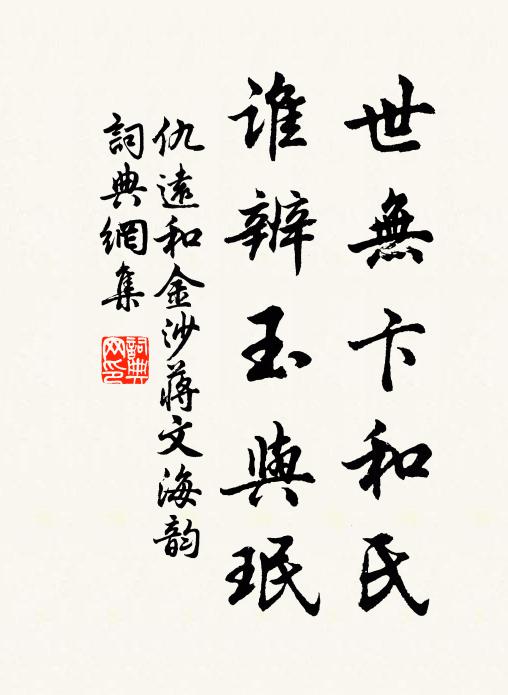 世無卞和氏
谁辨玉與珉
仇遠和金沙蔣文海韵
詞典網集
詞典網印